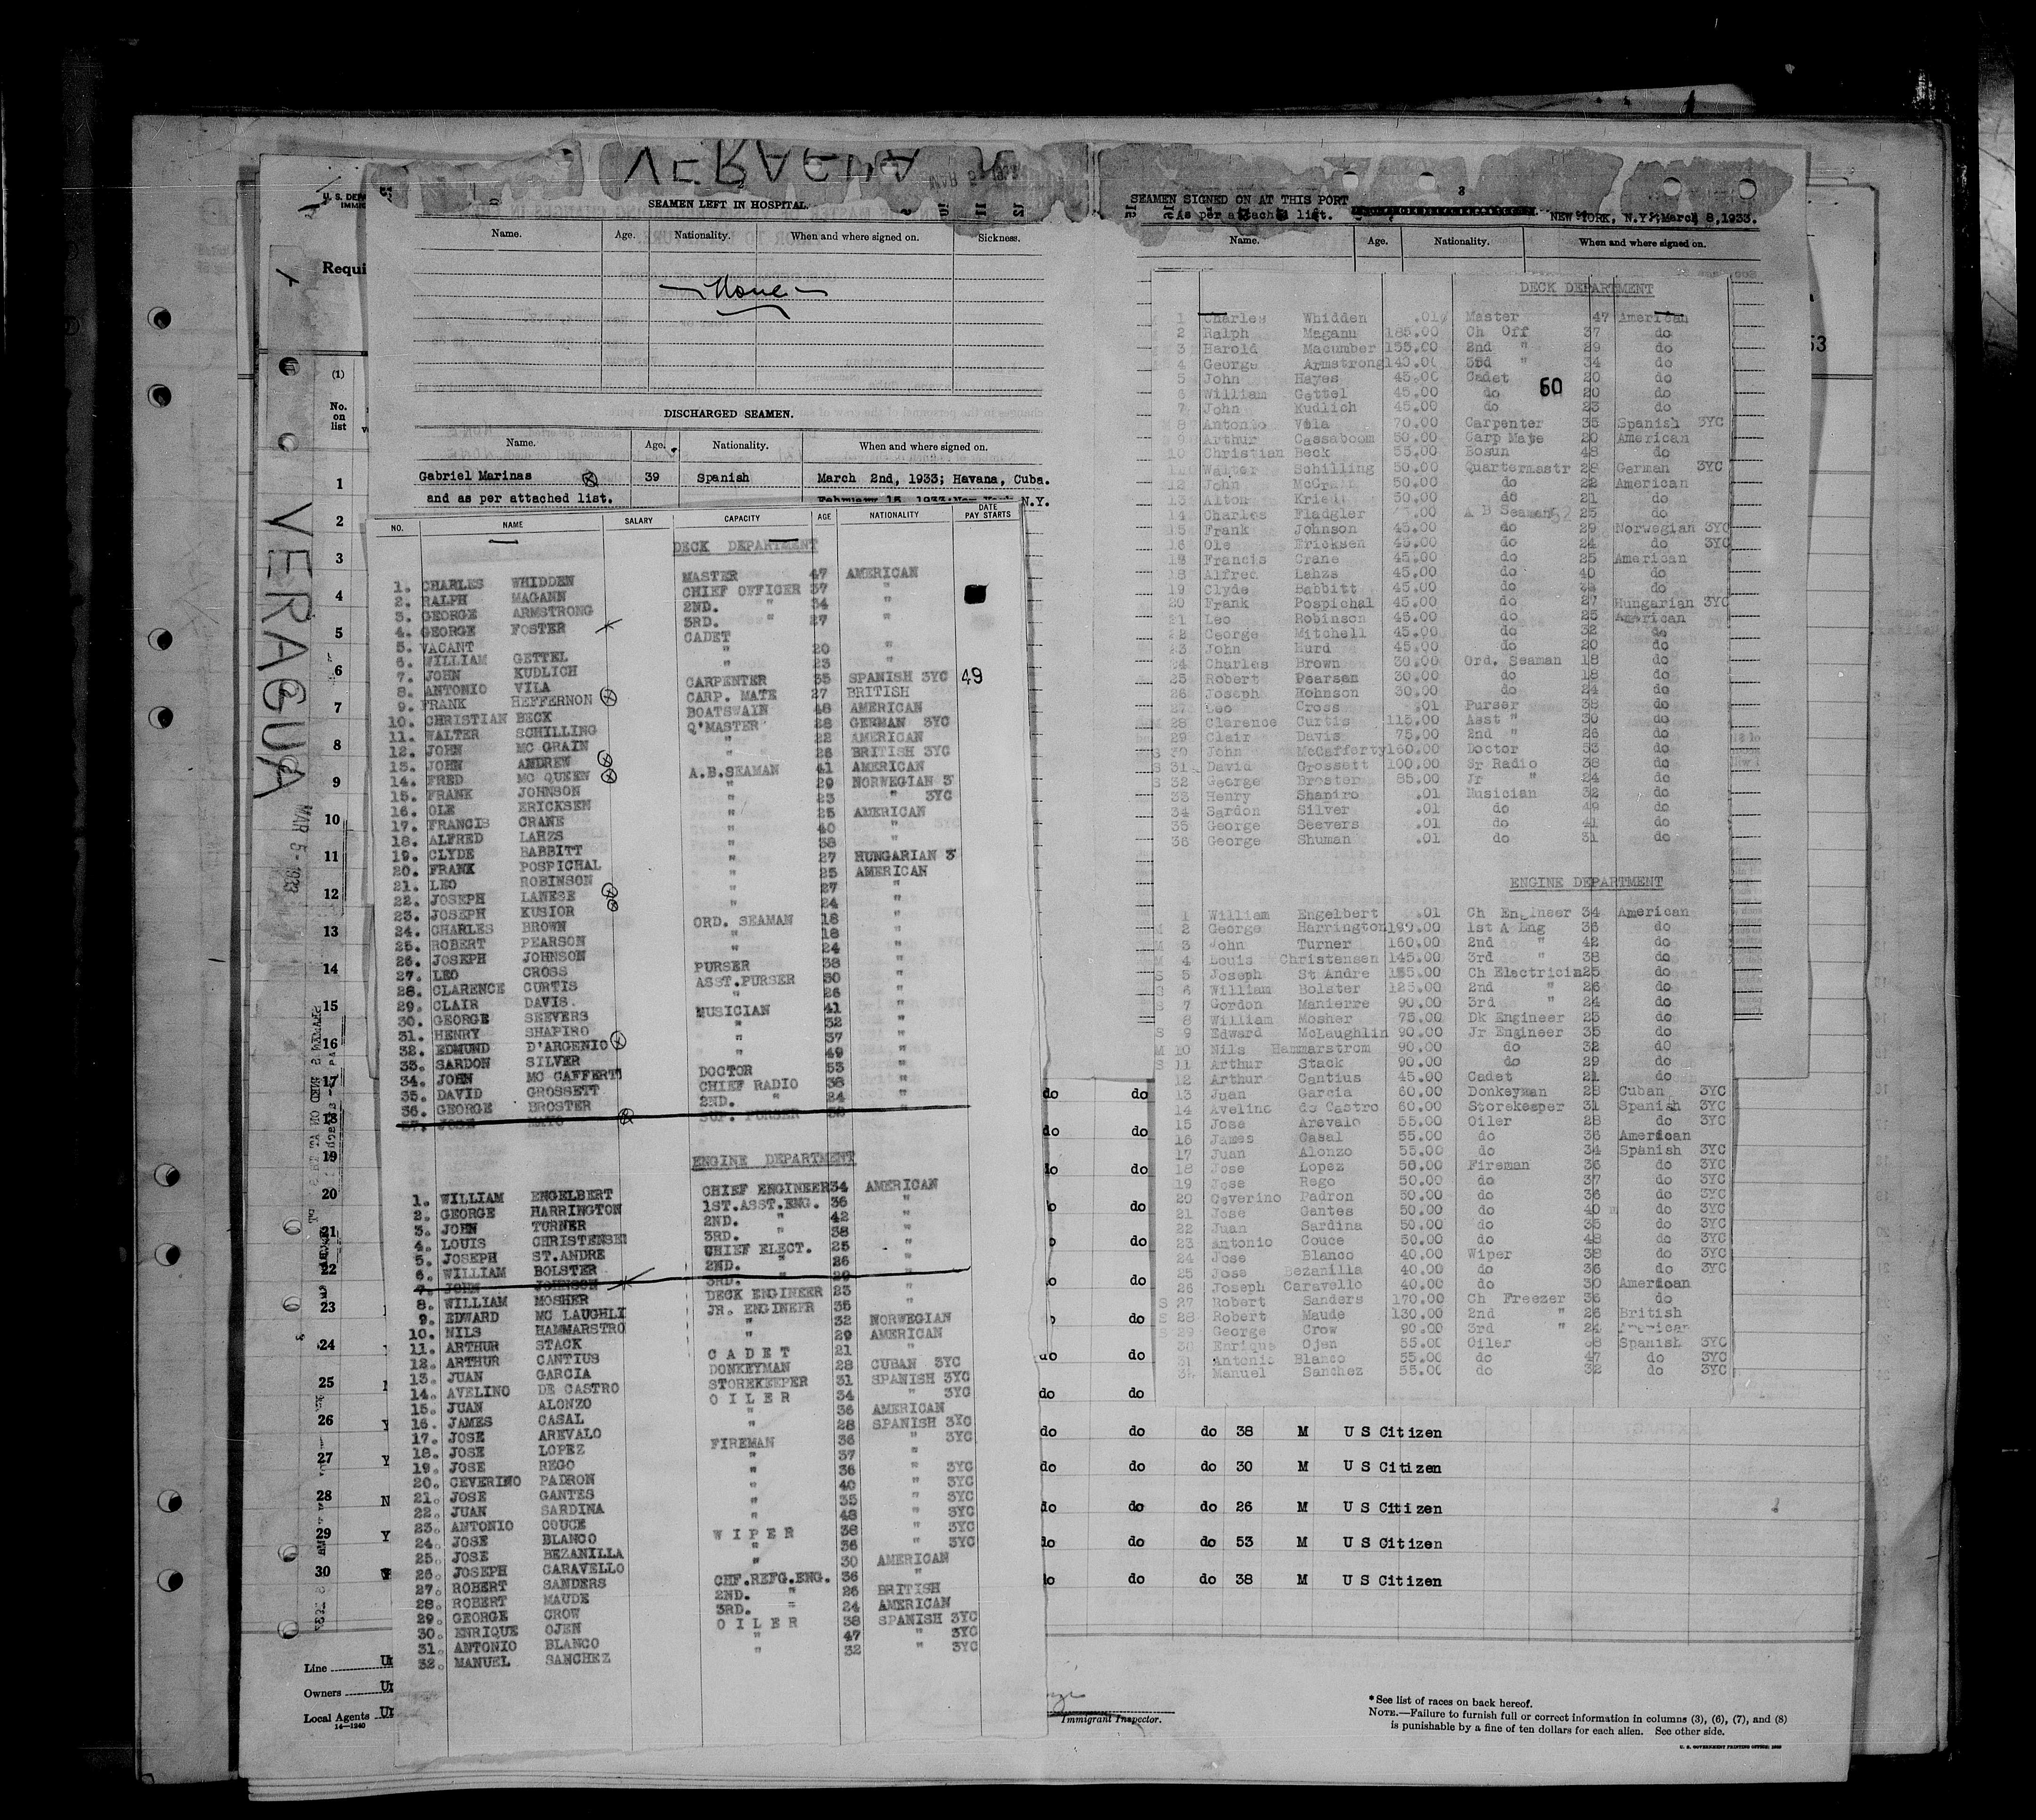 VERAGUA
MAR 5 - 1933
U. S. DEP
IMMI
Requi
(1)
No.
on
list
1
2
3
4
5
6
7
8
9
10
11
12
13
14
15
16
17
18
19
20
21
22
23
24
25
26
27
28
29
30
Line
Owners
Local Agents
14—1240
VERAGUA
2
SEAMEN LEFT IN HOSPITAL.
Name. Age. Nationality. When and where signed on. Sickness.
None
DISCHARGED SEAMEN.
Name. Age. Nationality. When and where signed on.
Gabriel Marinas 39 Spanish March 2nd, 1933; Havana, Cuba.
and as per attached list. N.Y.
NO. NAME SALARY CAPACITY AGE NATIONALITY DATE PAY STARTS
DECK DEPARTMENT
1. CHARLES WHIDDEN MASTER 47 AMERICAN
2. RALPH MAGANN CHIEF OFFICER 37 "
3. GEORGE ARMSTRONG 2ND. " 34 "
4. GEORGE FOSTER 3RD. " 27 "
5. VACANT CADET
6. WILLIAM GETTEL " 20 "
7. JOHN KUDLICH " 23 "
8. ANTONIO VILA CARPENTER 35 SPANISH 3YC 49
9. FRANK HEFFERNON CARP. MATE 27 BRITISH
10. CHRISTIAN BECK BOATSWAIN 48 AMERICAN
11. WALTER SCHILLING Q'MASTER 28 GERMAN 3YC
12. JOHN MC GRAIN " 22 AMERICAN
13. JOHN ANDREW " 26 BRITISH 3YC
14. FRED MC QUEEN A.B.SEAMAN 41 AMERICAN
15. FRANK JOHNSON " 29 NORWEGIAN 3
16. OLE ERICKSEN " 23 " 3YC
17. FRANCIS CRANE " 25 AMERICAN
18. ALFRED LAHZS " 40 "
19. CLYDE BABBITT " 38 "
20. FRANK POSPICHAL " 27 HUNGARIAN 3
21. LEO ROBINSON " 25 AMERICAN
22. JOSEPH LANESE " 27 "
23. JOSEPH KUSIOR " 24 "
24. CHARLES BROWN ORD. SEAMAN 18 "
25. ROBERT PEARSON " 18 "
26. JOSEPH JOHNSON " 24 "
27. LEO CROSS PURSER 38 "
28. CLARENCE CURTIS ASST.PURSER 30 "
29. CLAIR DAVIS. " 26 "
30. GEORGE SEEVERS MUSICIAN 41 "
31. HENRY SHAPIRO " 32 "
32. EDMUND D'ARGENIO " 37 "
33. SARDON SILVER " 49 "
34. JOHN MC CAFFERT DOCTOR 53 "
35. DAVID GROSSETT CHIEF RADIO 38 "
36. GEORGE BROSTER 2ND. " 24 "
37. JOSE MAYO SUP. PURSER
ENGINE DEPARTMENT
1. WILLIAM ENGELBERT CHIEF ENGINEER 34 AMERICAN
2. GEORGE HARRINGTON 1ST.ASST.ENG. 36 "
3. JOHN TURNER 2ND. " 42 "
4. LOUIS CHRISTENSE 3RD. " 38 "
5. JOSEPH ST.ANDRE CHIEF ELECT. 25 "
6. WILLIAM BOLSTER 2ND. " 26 "
7. JOHN JOHNSON 3RD. "
8. WILLIAM MOSHER DECK ENGINEER 23 "
9. EDWARD MC LAUGHLI JR. ENGINEER 35 "
10. NILS HAMMARSTRO " 32 NORWEGIAN
11. ARTHUR STACK " 29 AMERICAN
12. ARTHUR CANTIUS CADET 21 "
13. JUAN GARCIA DONKEYMAN 28 CUBAN 3YC
14. AVELINO DE CASTRO STOREKEEPER 31 SPANISH 3YC
15. JUAN ALONZO OILER 34 " 3YC
16. JAMES CASAL " 36 AMERICAN
17. JOSE AREVALO " 28 SPANISH 3YC
18. JOSE LOPEZ FIREMAN 36 " 3YC
19. JOSE REGO " 37 "
20. CEVERINO PADRON " 36 " 3YC
21. JOSE GANTES " 40 " 3YC
22. JUAN SARDINA " 35 " 3YC
23. ANTONIO COUCE " 48 " 3YC
24. JOSE BLANCO WIPER 38 " 3YC
25. JOSE BEZANILLA " 36 " 3YC
26. JOSEPH CARAVELLO " 30 AMERICAN
27. ROBERT SANDERS CHF.REFG.ENG. 36 "
28. ROBERT MAUDE 2ND. " 26 BRITISH
29. GEORGE CROW 3RD. " 24 AMERICAN
30. ENRIQUE OJEN OILER 38 SPANISH 3YC
31. ANTONIO BLANCO " 47 " 3YC
32. MANUEL SANCHEZ " 32 " 3YC
3
SEAMEN SIGNED ON AT THIS PORT
As per attached list. NEW YORK, N.Y., March 8, 1933.
Name. Age. Nationality. When and where signed on.
DECK DEPARTMENT
1 Charles Whidden .01 Master 47 American
2 Ralph Magann 185.00 Ch Off 37 do
3 Harold Macumber 155.00 2nd " 29 do
4 George Armstrong 140.00 3rd " 34 do
5 John Hayes 45.00 Cadet 20 do
60
6 William Gettel 45.00 do 20 do
7 John Kudlich 45.00 do 23 do
8 Antonio Vila 70.00 Carpenter 35 Spanish 3YC
9 Arthur Cassaboom 50.00 Carp Mate 20 American
10 Christian Beck 55.00 Bosun 48 do
11 Walter Schilling 50.00 Quartermastr 28 German 3YC
12 John McGrain 50.00 do 22 American
13 Alton Kriedt 50.00 do 21 do
14 Charles Fladgler .00 A B Seaman 25 do
15 Frank Johnson 45.00 do 29 Norwegian 3YC
16 Ole Ericksen 45.00 do 24 do 3YC
Francis Crane 45.00 do 25 American
18 Alfred Lahzs 45.00 do 40 do
19 Clyde Babbitt 45.00 do do
20 Frank Pospichal 45.00 do 27 Hungarian 3YC
21 Leo Robinson 45.00 do 25 American
22 George Mitchell 45.00 do 32 do
23 John Hurd 45.00 do 20 do
24 Charles Brown 30.00 Ord. Seaman 18 do
25 Robert Pearson 30.00 do 18 do
26 Joseph Hohnson 30.00 do 24 do
27 Leo Cross .01 Purser 38 do
28 Clarence Curtis 115.00 Asst " 30 do
29 Clair Davis 75.00 2nd " 26 do
S 30 John McCafferty 160.00 Doctor 53 do
S 31 David Grossett 100.00 Sr Radio 38 do
S 32 George Broster 85.00 Jr " 24 do
33 Henry Shapiro .01 Musician 32 do
34 Sardon Silver .01 do 49 do
35 George Seevers .01 do 41 do
36 George Shuman .01 do 31 do
ENGINE DEPARTMENT
1 William Engelbert .01 Ch Engineer 34 American
M 2 George Harrington 190.00 1st A Eng 36 do
M 3 John Turner 160.00 2nd " 42 do
M 4 Louis Christensen 145.00 3rd " 38 do
S 5 Joseph St Andre 155.00 Ch Electricin 25 do
S 6 William Bolster 125.00 2nd " 26 do
S 7 Gordon Manierre 90.00 3rd " 24 do
8 William Mosher 75.00 Dk Engineer 23 do
S 9 Edward McLaughlin 90.00 Jr Engineer 35 do
M 10 Nils Hammarstrom 90.00 do 32 do
S 11 Arthur Stack 90.00 do 29 do
12 Arthur Cantius 45.00 Cadet 21 do
13 Juan Garcia 60.00 Donkeyman 28 Cuban 3YC
14 Avelino de Castro 60.00 Storekeeper 31 Spanish 3YC
15 Jose Arevalo 55.00 Oiler 28 do 3YC
16 James Casal 55.00 do 36 American
17 Juan Alonzo 55.00 do 34 Spanish 3YC
18 Jose Lopez 50.00 Fireman 36 do 3YC
19 Jose Rego 50.00 do 37 do 3YC
20 Ceverino Padron 50.00 do 36 do 3YC
21 Jose Gantes 50.00 do 40 do 3YC
22 Juan Sardina 50.00 do 35 do 3YC
23 Antonio Couce 50.00 do 48 do 3YC
24 Jose Blanco 40.00 Wiper 38 do 3YC
25 Jose Bezanilla 40.00 do 36 do 3YC
26 Joseph Caravello 40.00 do 30 American
S 27 Robert Sanders 170.00 Ch Freezer 36 do
S 28 Robert Maude 130.00 2nd " 26 British
S 29 George Crow 90.00 3rd " 24 American
30 Enrique Ojen 55.00 Oiler 38 Spanish 3YC
31 Antonio Blanco 55.00 do 47 do 3YC
32 Manuel Sanchez 55.00 do 32 do 3YC
53
do do
do do
do do
do
do
do
do
do do
do do
do do do 38 M U S Citizen
do do do 30 M U S Citizen
do do do 26 M U S Citizen
do do do 53 M U S Citizen
do do do 38 M U S Citizen
Immigrant Inspector.
* See list of races on back hereof.
NOTE.—Failure to furnish full or correct information in columns (3), (6), (7), and (8)
is punishable by a fine of ten dollars for each alien. See other side.
U. S. GOVERNMENT PRINTING OFFICE